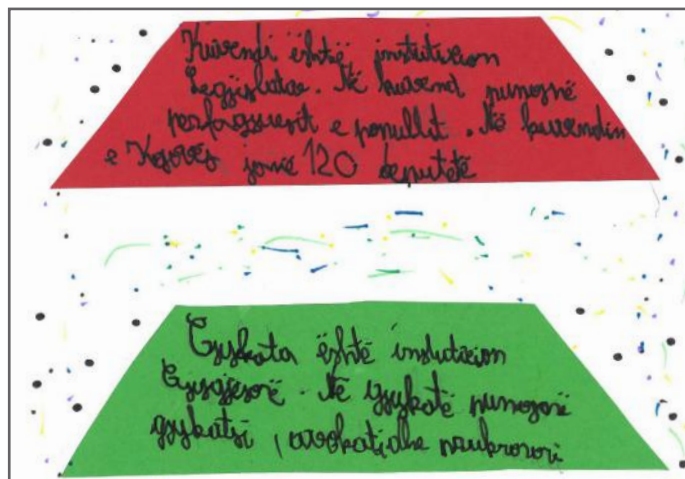 Kuvendi është instutivion
Legjislator. Në kuvend punojnë
perfaqsuesit e ponullit. Në kuvendin
e Kosovës janë 120 deputetë
Gjykata është instutivion
Gjyqësorë. Në gjykatë punojnë
gjykatsi, avokati, dhe